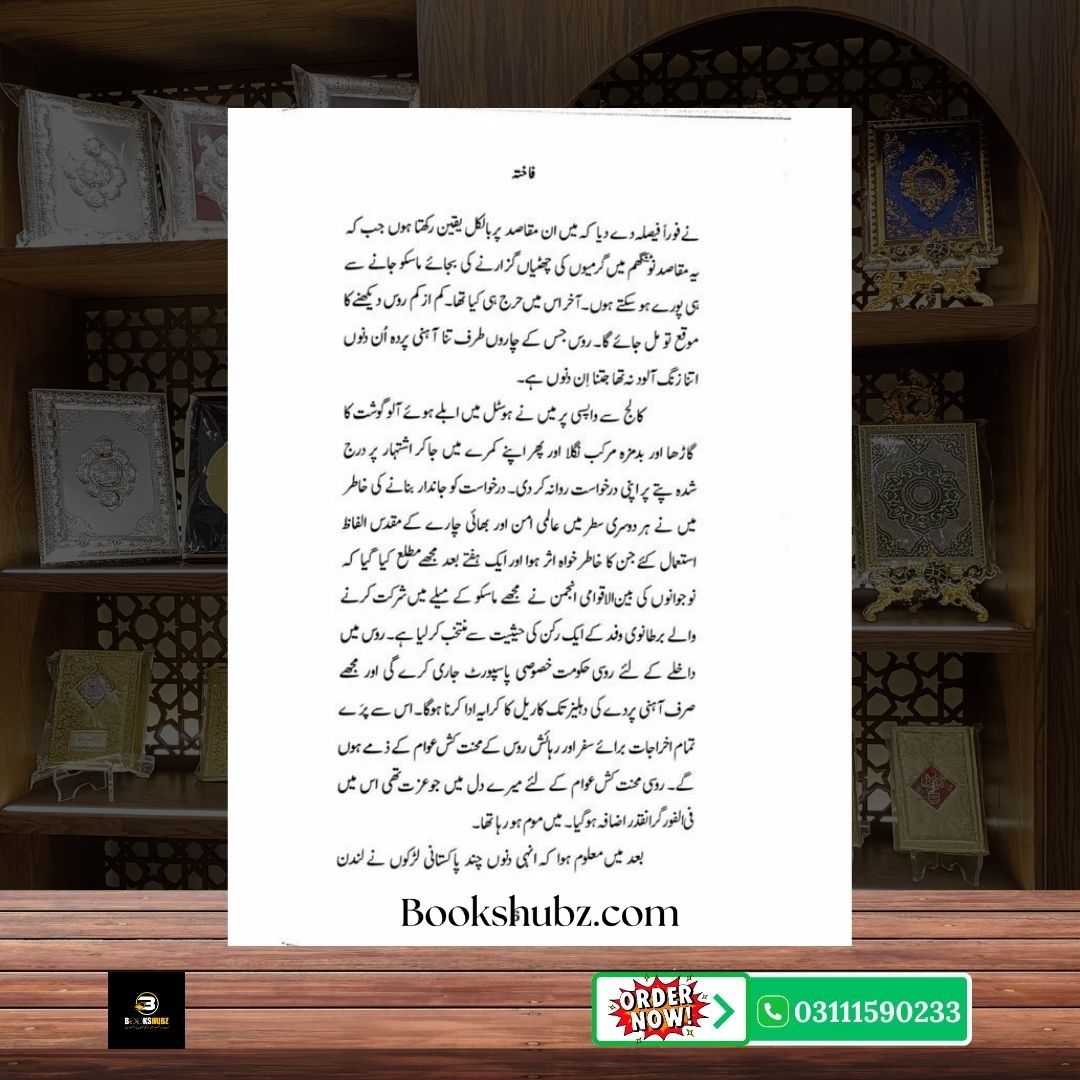 فاختہ
نے فوراً فیصلہ دے دیا کہ میں ان مقاصد پر بالکل یقین رکھتا ہوں جب کہ
یہ مقاصد نوٹنگھم میں گرمیوں کی چھٹیاں گزارنے کی بجائے ماسکو جانے سے
ہی پورے ہو سکتے ہوں۔ آخر اس میں حرج ہی کیا تھا۔ کم از کم روس دیکھنے کا
موقع تو مل جائے گا۔ روس جس کے چاروں طرف تنا آہنی پردہ اُن دنوں
اتنا زنگ آلود نہ تھا جتنا اِن دنوں ہے۔
کالج سے واپسی پر میں نے ہوسٹل میں ابلے ہوئے آلو گوشت کا
گاڑھا اور بدمزہ مرکب نگلا اور پھر اپنے کمرے میں جا کر اشتہار پر درج
شدہ پتے پر اپنی درخواست روانہ کر دی۔ درخواست کو جاندار بنانے کی خاطر
میں نے ہر دوسری سطر میں عالمی امن اور بھائی چارے کے مقدس الفاظ
استعمال کئے جن کا خاطر خواہ اثر ہوا اور ایک ہفتے بعد مجھے مطلع کیا گیا کہ
نوجوانوں کی بین الاقوامی انجمن نے مجھے ماسکو کے میلے میں شرکت کرنے
والے برطانوی وفد کے ایک رکن کی حیثیت سے منتخب کر لیا ہے۔ روس میں
داخلے کے لئے روسی حکومت خصوصی پاسپورٹ جاری کرے گی اور مجھے
صرف آہنی پردے کی دہلیز تک کا ریل کا کرایہ ادا کرنا ہوگا۔ اس سے پرے
تمام اخراجات برائے سفر اور رہائش روس کے محنت کش عوام کے ذمے ہوں
گے۔ روسی محنت کش عوام کے لئے میرے دل میں جو عزت تھی اس میں
فی الفور گرانقدر اضافہ ہو گیا۔ میں موم ہو رہا تھا۔
بعد میں معلوم ہوا کہ انہی دنوں چند پاکستانی لڑکوں نے لندن
Bookshubz.com
BOOKSHUBZ
ORDER NOW!
03111590233